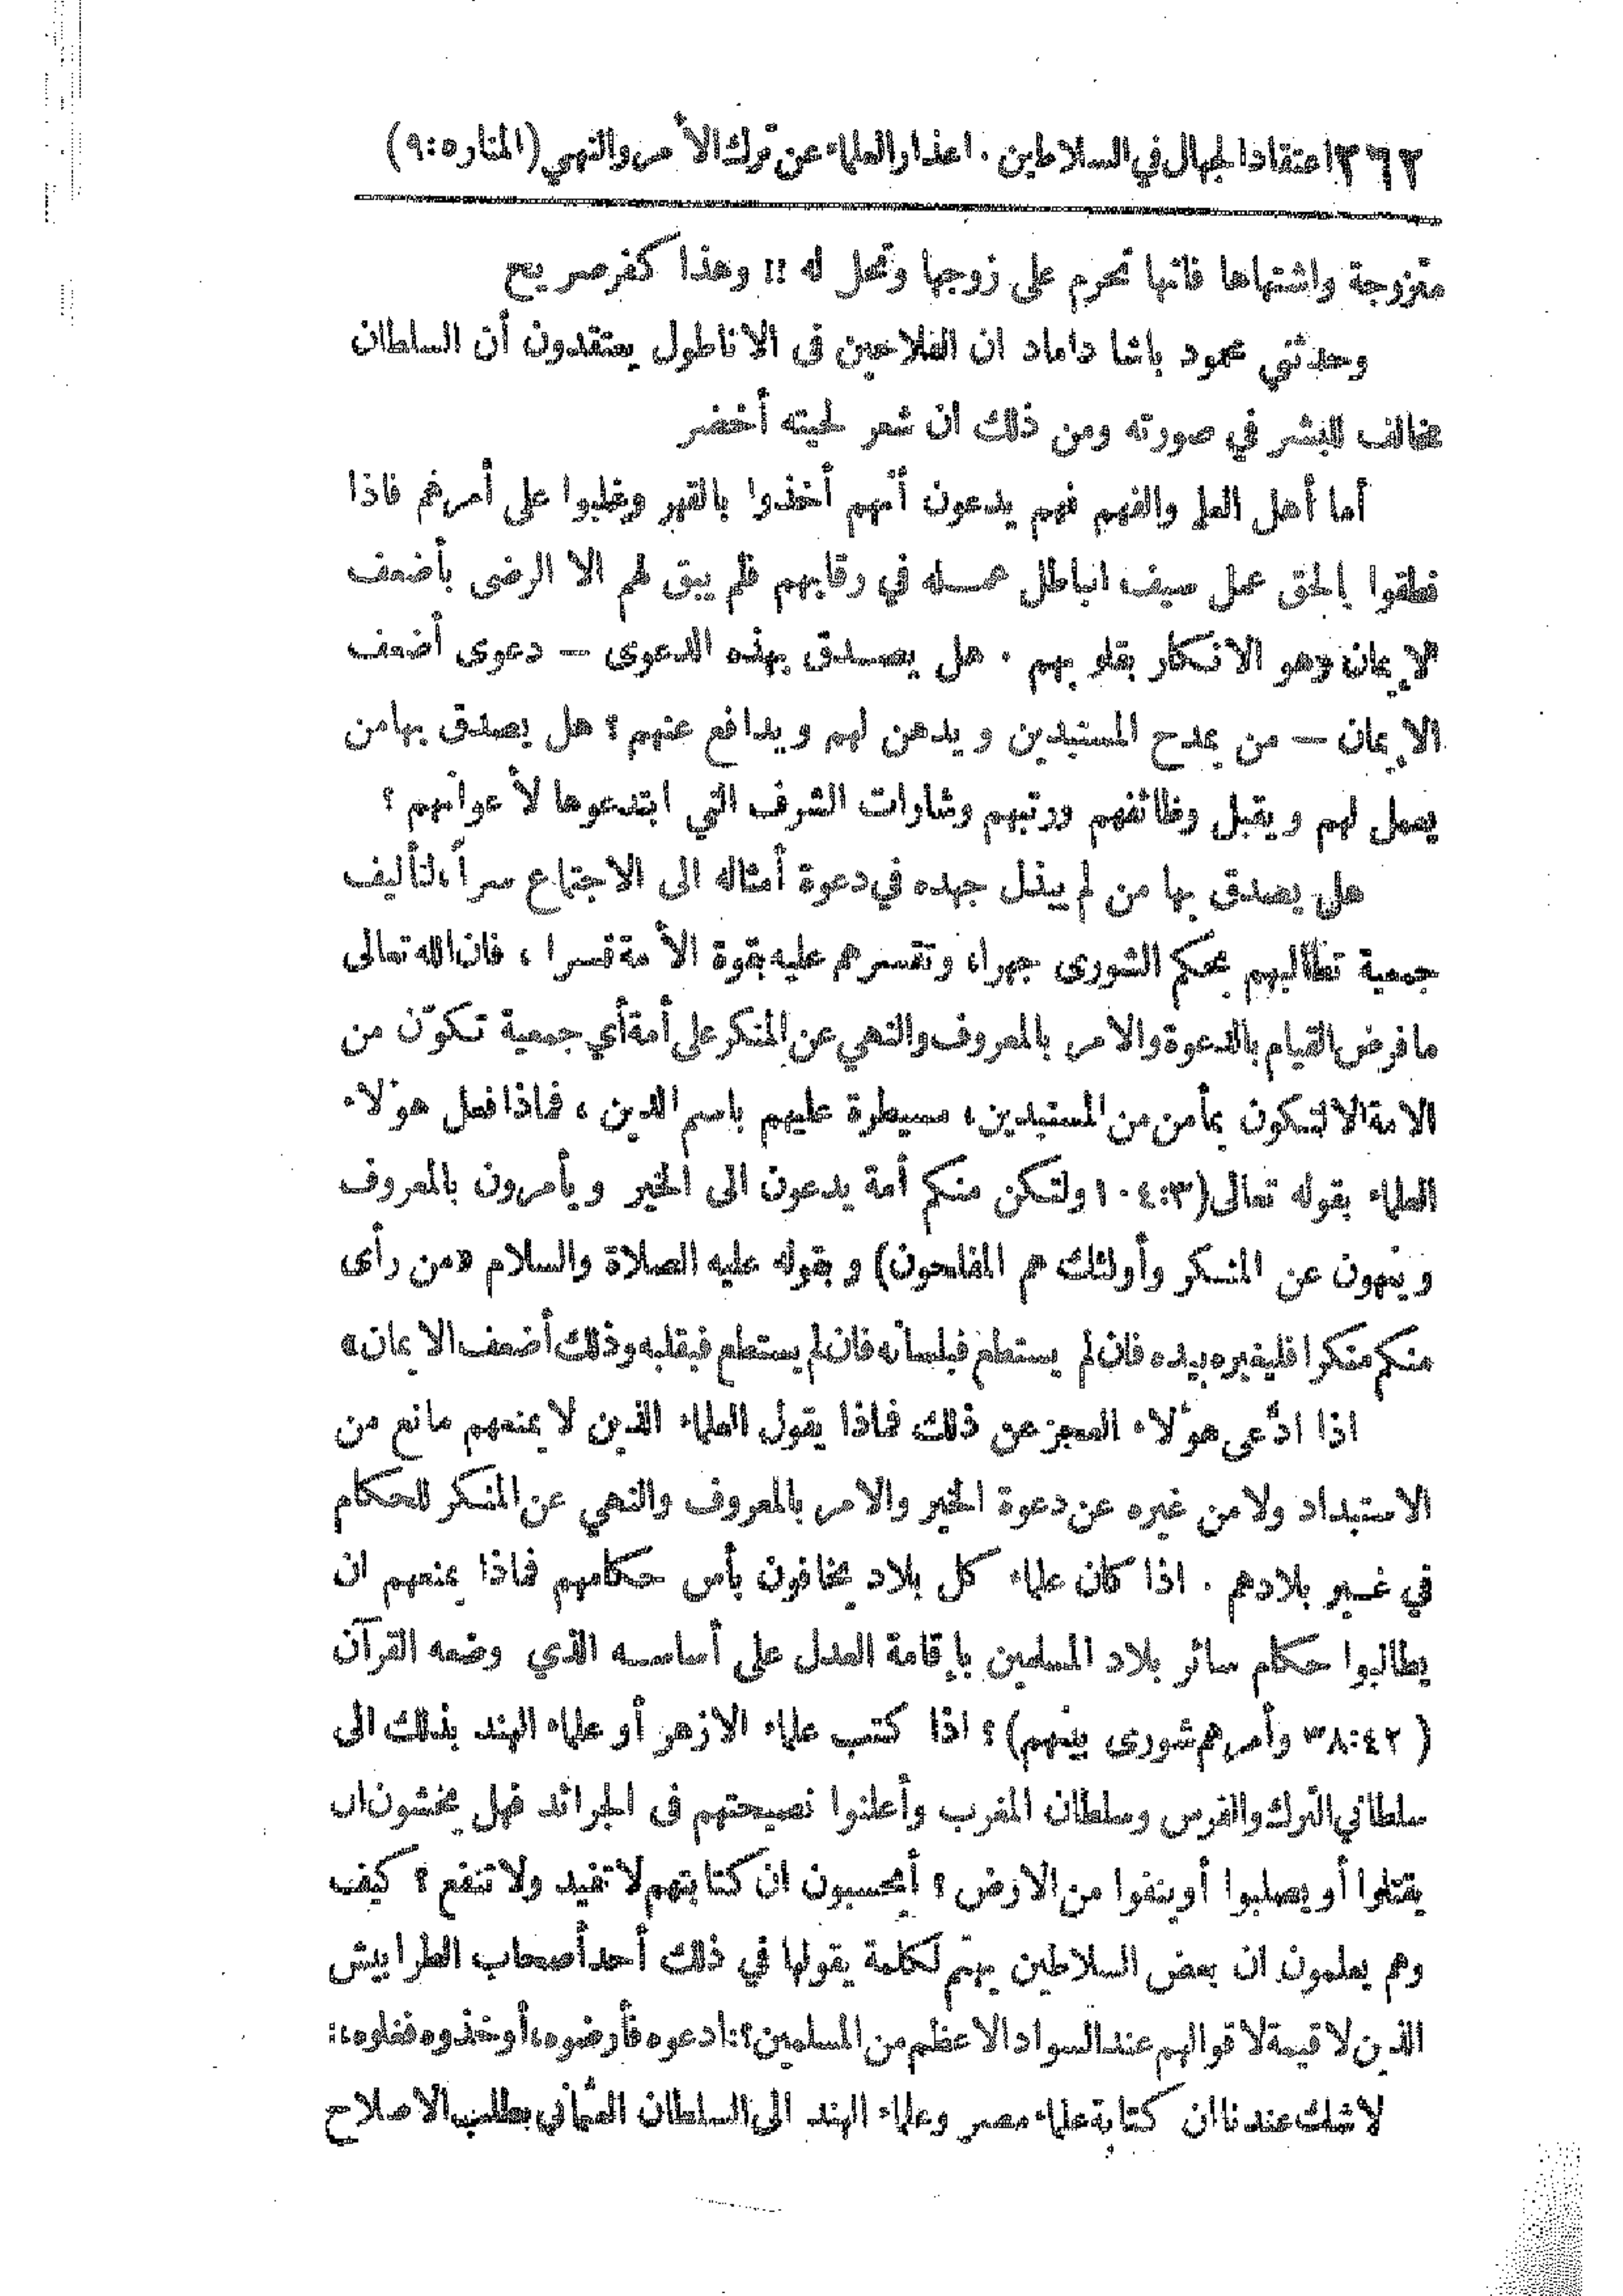 ٣٦٢ اعتقاد الجهال في السلاطين . اعذار العلماء عن ترك الأمر والنهي (المنار ٥ : ٩)
متزوجة واشتهاها فانها تحرم على زوجها وتحل له !! وهذا كفر صريح
وحدثني محمود باشا داماد ان الفلاحين في الاناطول يعتقدون أن السلطان
مخالف للبشر في صورته ومن ذلك ان شعر لحيته أخضر
أما أهل العلم والفهم فهم يدعون أنهم أخذوا بالقهر وغلبوا على أمرهم فاذا
نطقوا بالحق عمل سيف الباطل عمله في رقابهم فلم يبق لهم الا الرضى بأضعف
الإيمان وهو الانكار بقلوبهم . هل يصدق بهذه الدعوى — دعوى أضعف
الايمان — من يمدح المستبدين ويدهن لهم ويدافع عنهم ؟ هل يصدق بها من
يعمل لهم ويقبل وظائفهم ورتبهم وشارات الشرف التي ابتدعوها لأعوانهم ؟
هل يصدق بها من لم يبذل جهده في دعوة أمثاله الى الاجتماع سراً ، لتأليف
جمعية تطالبهم بحكم الشورى جهرا ، وتقسرهم عليه بقوة الأمة قسرا ، فان الله تعالى
ما فرض القيام بالدعوة والامر بالمعروف والنهي عن المنكر على أمة أي جمعية تكوّن من
الامة الا لتكون بمأمن من المستبدين ، مسيطرة عليهم باسم الدين ، فماذا فعل هؤلاء
العلماء بقوله تعالى (٣:١٠٤ ولتكن منكم أمة يدعون الى الخير ويأمرون بالمعروف
وينهون عن المنكر وأولئك هم المفلحون) وبقوله عليه الصلاة والسلام «من رأى
منكم منكرا فليغيره بيده فان لم يستطع فبلسانه فان لم يستطع فبقلبه وذلك أضعف الايمان»
اذا ادّعى هؤلاء العجز عن ذلك فماذا يقول العلماء الذين لا يمنعهم مانع من
الاستبداد ولا من غيره عن دعوة الخير والامر بالمعروف والنهي عن المنكر للحكام
في غير بلادهم . اذا كان علماء كل بلاد يخافون بأس حكامهم فماذا يمنعهم ان
يطالبوا حكام سائر بلاد المسلمين بإقامة العدل على أساسه الذي وضعه القرآن
(٤٢:٣٨ وأمرهم شورى بينهم) ؟ اذا كتب علماء الازهر أو علماء الهند بذلك الى
سلطاني الترك والفرس وسلطان المغرب وأعلنوا نصيحتهم في الجرائد فهل يخشون ان
يقتلوا أو يصلبوا أو ينفوا من الارض ؟ أيحسبون ان كتابتهم لا تفيد ولا تنفع ؟ كيف
وهم يعلمون ان بعض السلاطين يهتم لكلمة يقولها في ذلك أحد أصحاب الطرابيش
الذين لا قيمة لاقوالهم عند السواد الاعظم من المسلمين ؟ : ادعوه فأرضوه ، أو خذوه فغلوه ، :
لا شك عندنا ان كتابة علماء مصر وعلماء الهند الى السلطان العثماني بطلب الاصلاح